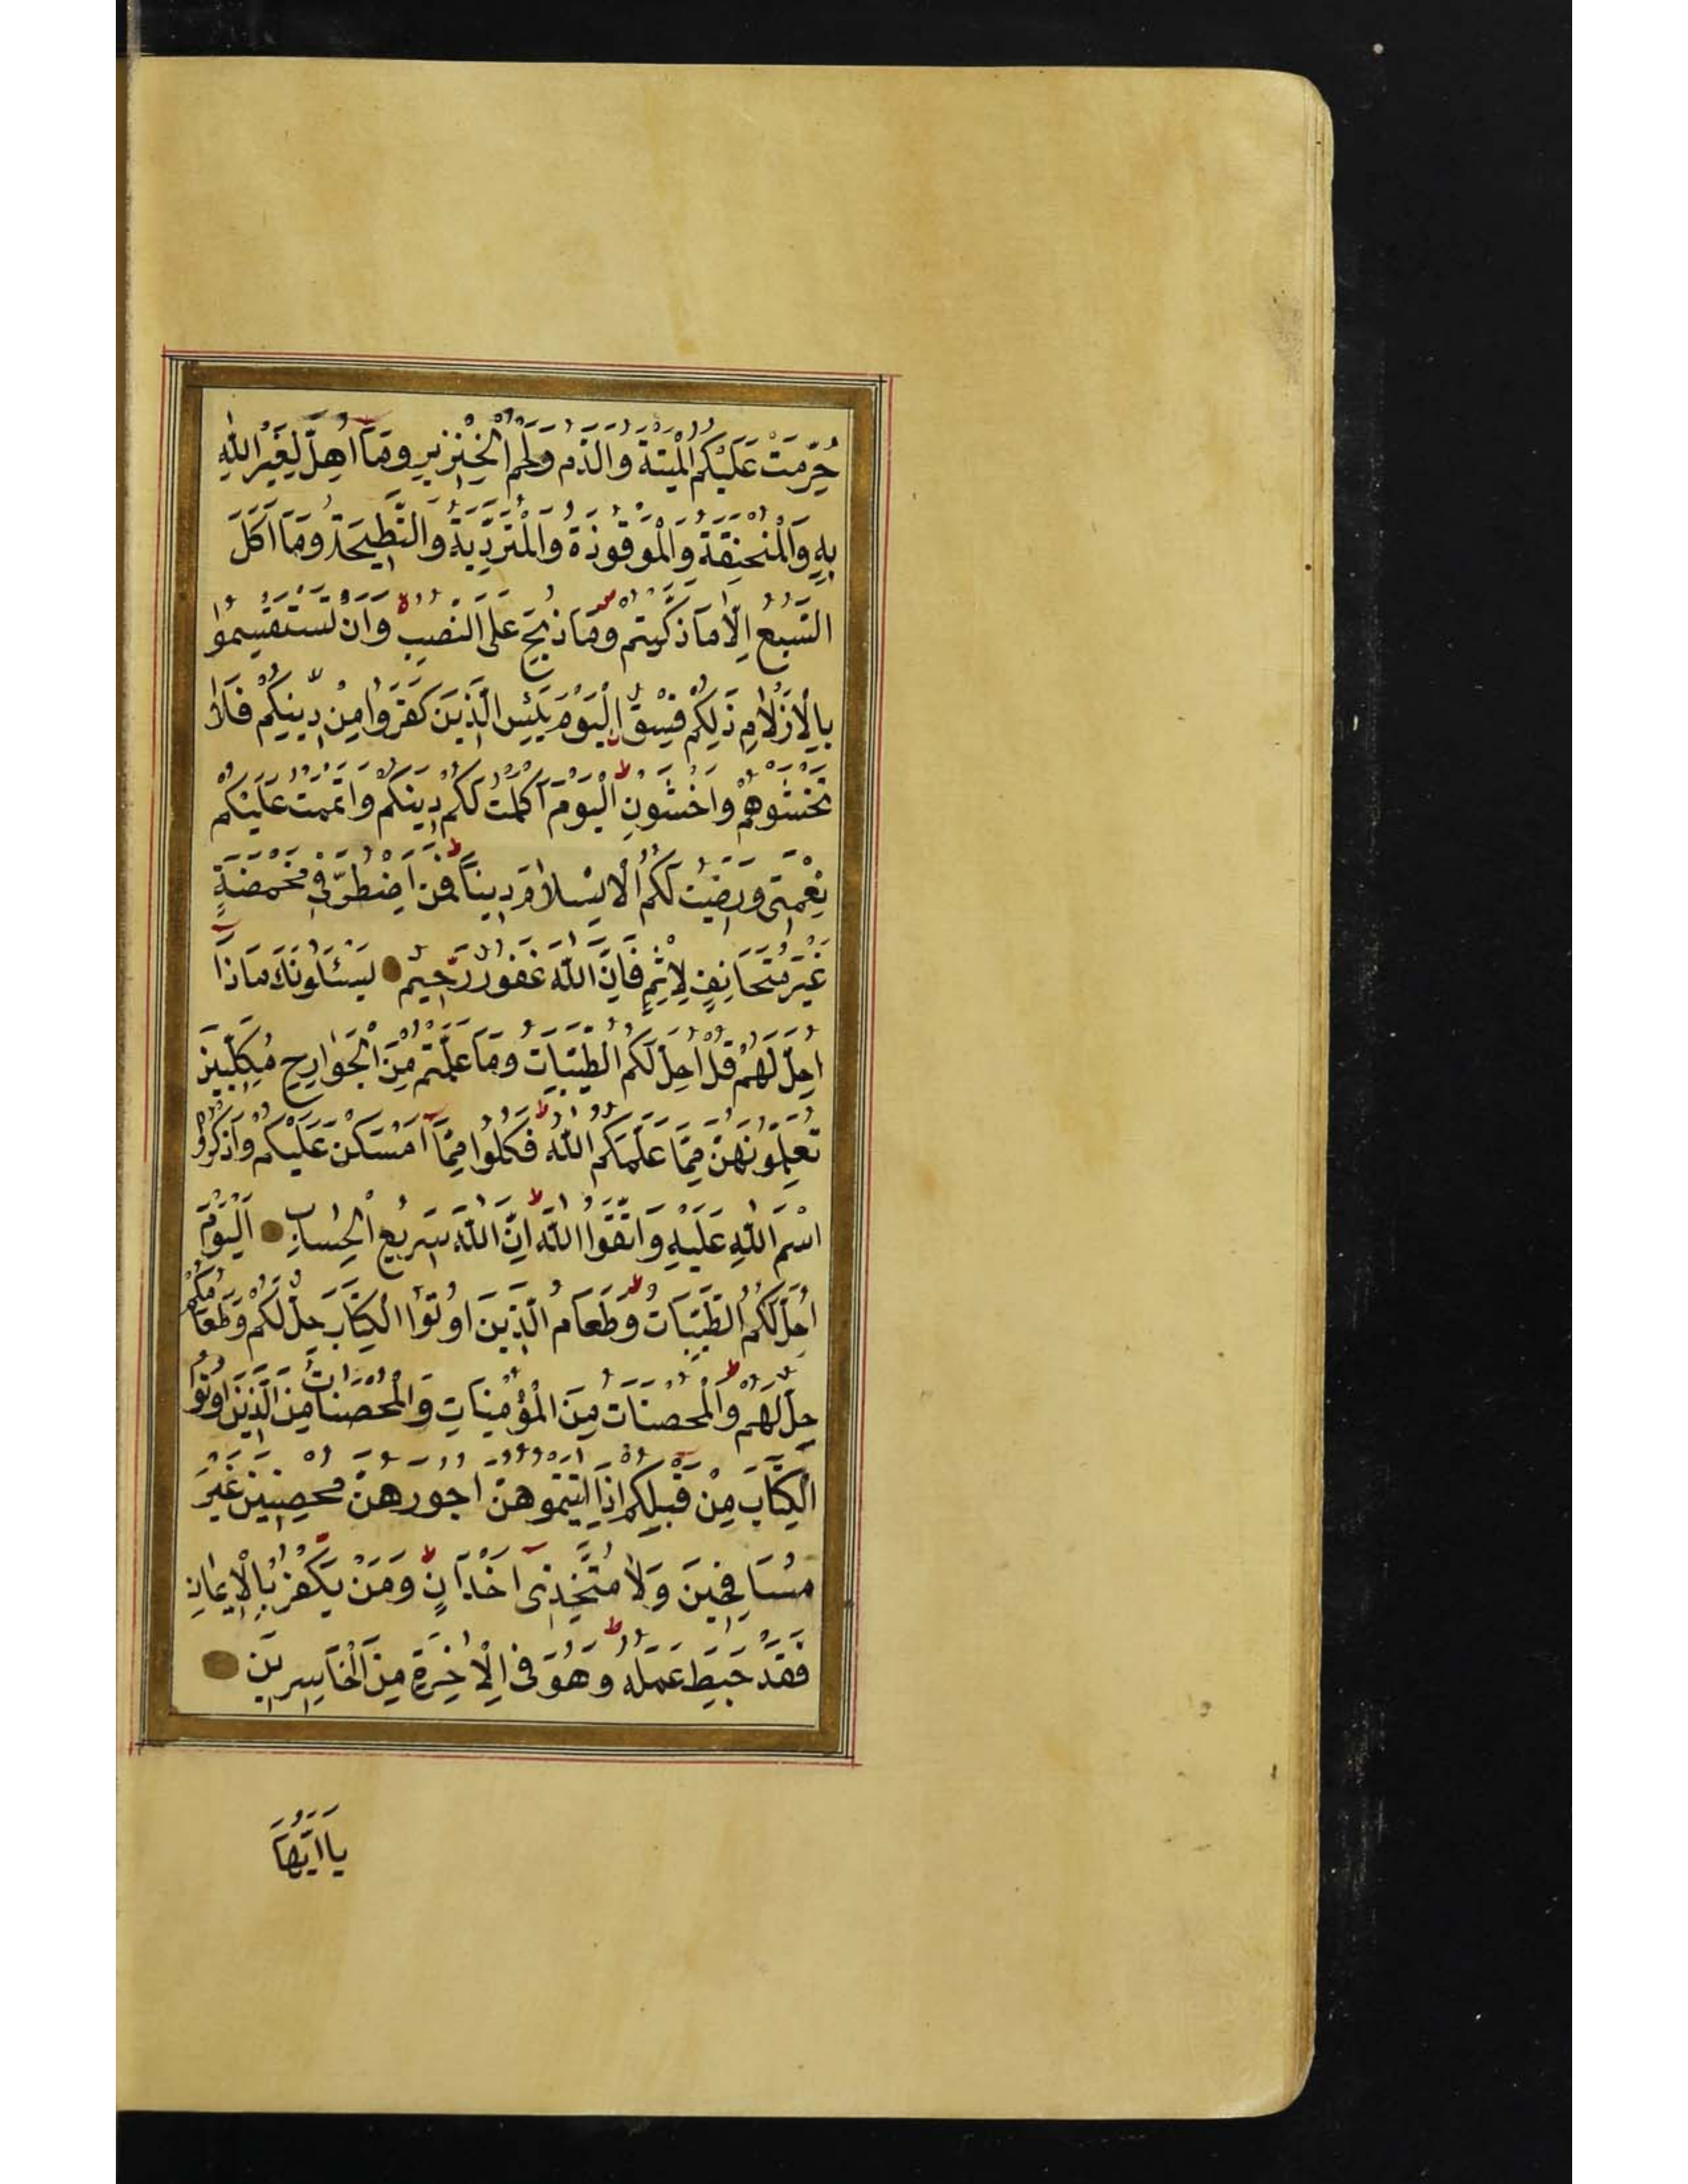 حُرِّمَتْ عَلَيْكُمُ الْمَيْتَةُ وَالدَّمُ وَلَحْمُ الْخِنْزِيرِ وَمَآ اُهِلَّ لِغَيْرِ اللّٰهِ
بِهِ وَالْمُنْخَنِقَةُ وَالْمَوْقُوذَةُ وَالْمُتَرَدِّيَةُ وَالنَّطِيحَةُ وَمَآ اَكَلَ
السَّبُعُ اِلَّا مَا ذَكَّيْتُمْ وَمَا ذُبِحَ عَلَى النُّصُبِ وَاَنْ تَسْتَقْسِمُوا
بِالْاَزْلَامِ ذٰلِكُمْ فِسْقٌ اَلْيَوْمَ يَئِسَ الَّذِينَ كَفَرُوا مِنْ دِينِكُمْ فَلَا
تَخْشَوْهُمْ وَاخْشَوْنِ اَلْيَوْمَ اَكْمَلْتُ لَكُمْ دِينَكُمْ وَاَتْمَمْتُ عَلَيْكُمْ
نِعْمَتِى وَرَضِيتُ لَكُمُ الْاِسْلَامَ دِينًا فَمَنِ اضْطُرَّ فِى مَخْمَصَةٍ
غَيْرَ مُتَجَانِفٍ لِاِثْمٍ فَاِنَّ اللّٰهَ غَفُورٌ رَحِيمٌ يَسْئَلُونَكَ مَاذَآ
اُحِلَّ لَهُمْ قُلْ اُحِلَّ لَكُمُ الطَّيِّبَاتُ وَمَا عَلَّمْتُمْ مِنَ الْجَوَارِحِ مُكَلِّبِينَ
تُعَلِّمُونَهُنَّ مِمَّا عَلَّمَكُمُ اللّٰهُ فَكُلُوا مِمَّآ اَمْسَكْنَ عَلَيْكُمْ وَاذْكُرُوا
اسْمَ اللّٰهِ عَلَيْهِ وَاتَّقُوا اللّٰهَ اِنَّ اللّٰهَ سَرِيعُ الْحِسَابِ اَلْيَوْمَ
اُحِلَّ لَكُمُ الطَّيِّبَاتُ وَطَعَامُ الَّذِينَ اُوتُوا الْكِتَابَ حِلٌّ لَكُمْ وَطَعَامُكُمْ
حِلٌّ لَهُمْ وَالْمُحْصَنَاتُ مِنَ الْمُؤْمِنَاتِ وَالْمُحْصَنَاتُ مِنَ الَّذِينَ اُوتُوا
الْكِتَابَ مِنْ قَبْلِكُمْ اِذَآ اٰتَيْتُمُوهُنَّ اُجُورَهُنَّ مُحْصِنِينَ غَيْرَ
مُسَافِحِينَ وَلَا مُتَّخِذِىٓ اَخْدَانٍ وَمَنْ يَكْفُرْ بِالْاِيمَانِ
فَقَدْ حَبِطَ عَمَلُهُ وَهُوَ فِى الْاٰخِرَةِ مِنَ الْخَاسِرِينَ
يَا اَيُّهَا